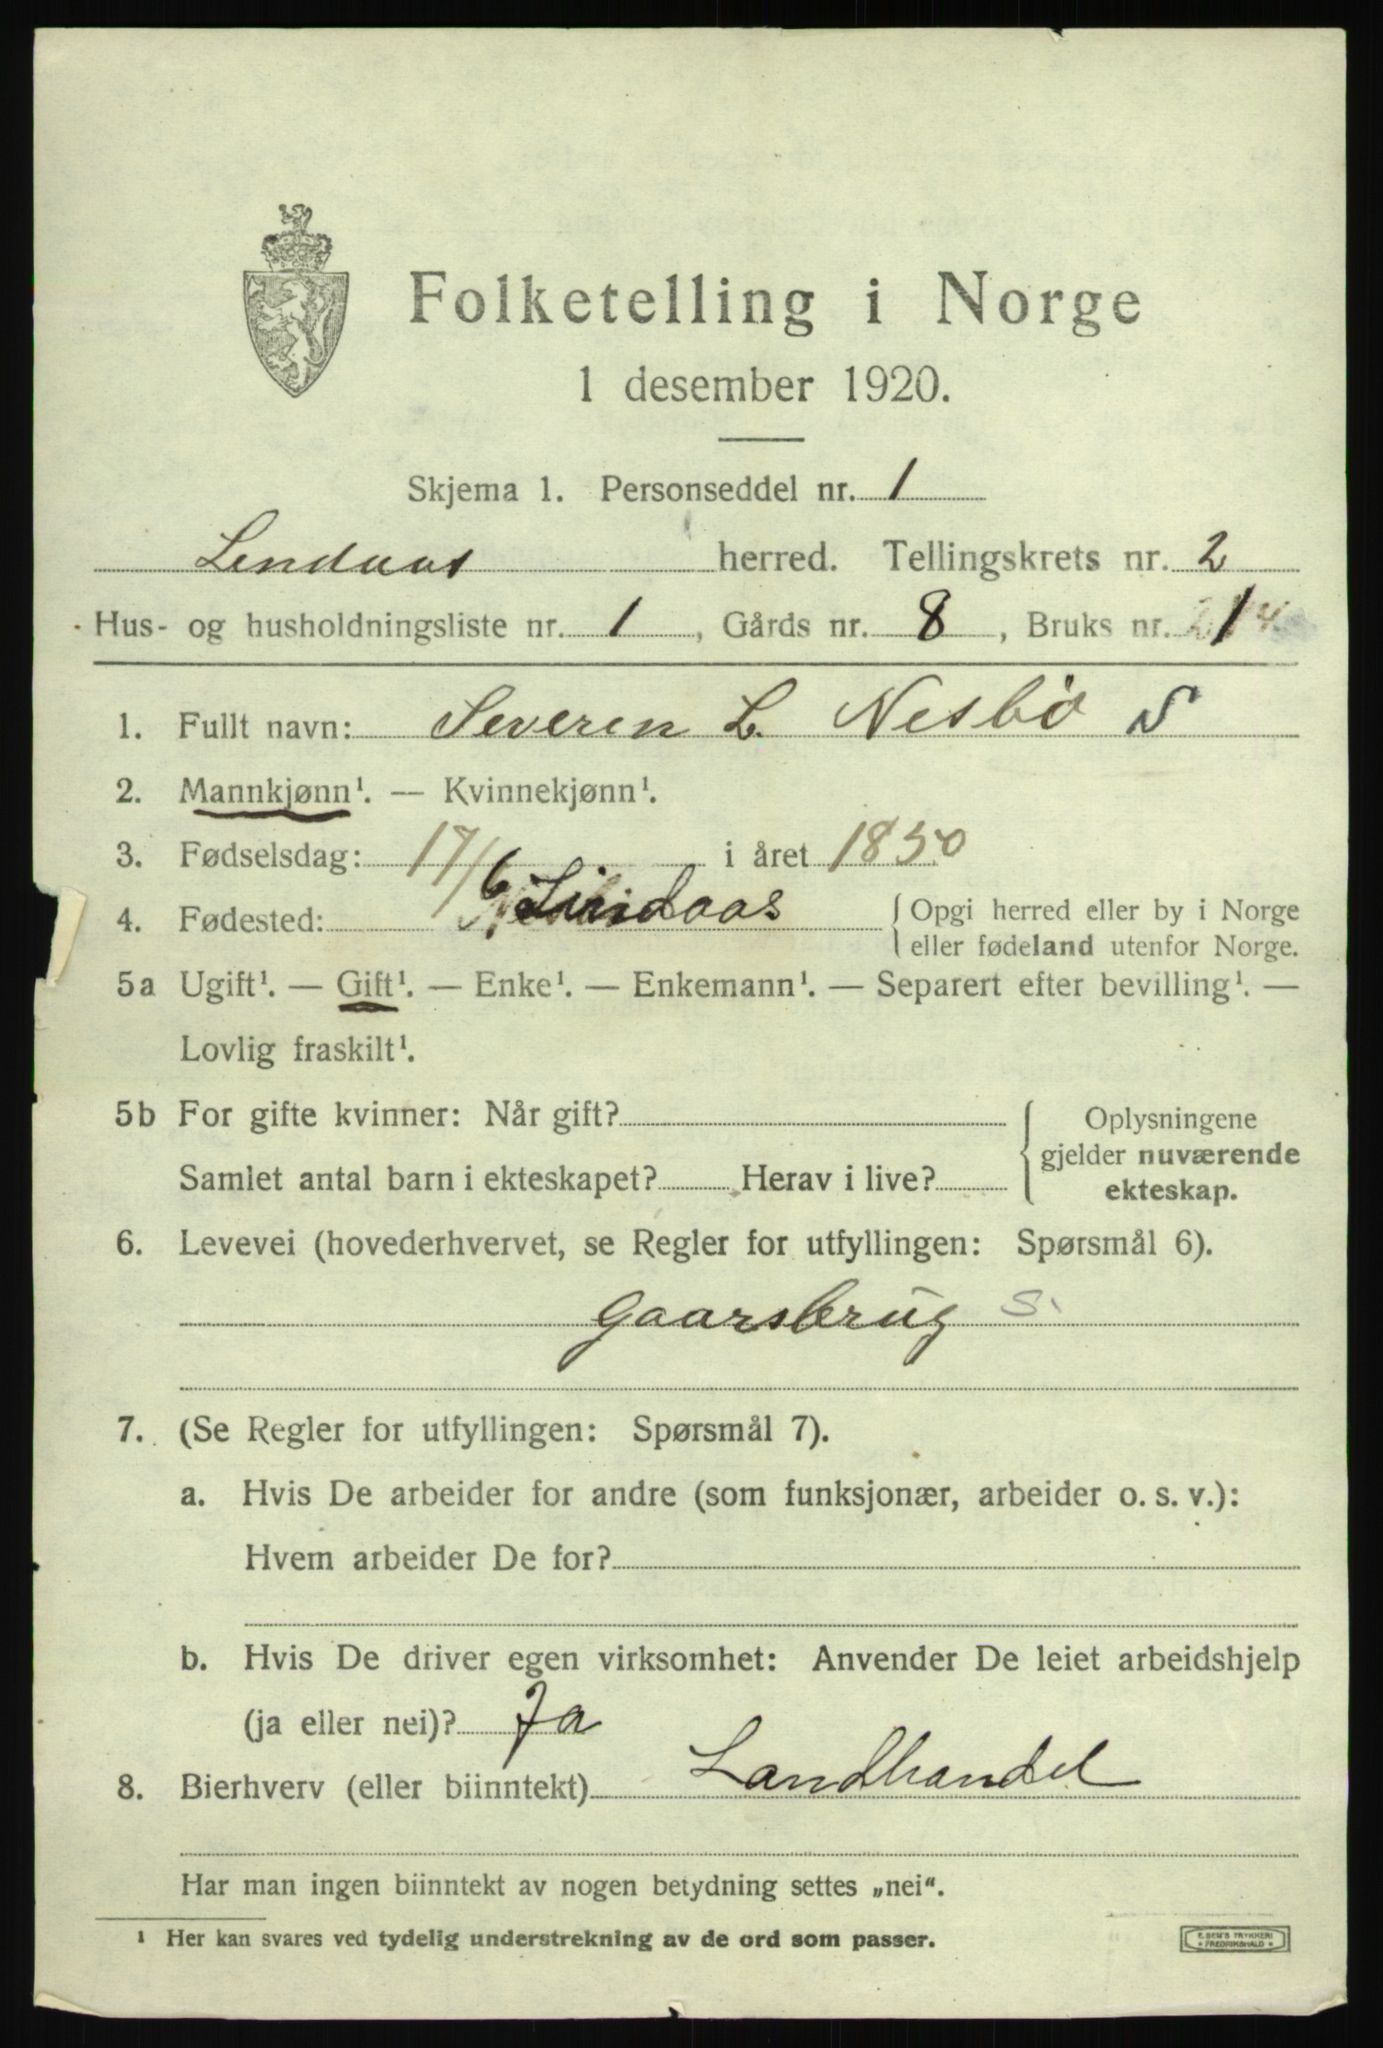 Folketelling i Norge
1 desember 1920.
Skjema 1. Personseddel nr. 1
Lendaas herred. Tellingskrets nr. 2
Hus- og husholdningsliste nr. 1, Gårds nr. 8, Bruks nr. 1
1. Fullt navn: Severen L. Nesbö S
2. Mannkjønn¹. — Kvinnekjønn¹.
3. Fødselsdag: 17/6 i året 1850
4. Fødested: Lindaas { Opgi herred eller by i Norge
eller fødeland utenfor Norge.
5a Ugift¹. — Gift¹. — Enke¹. — Enkemann¹. — Separert efter bevilling¹. —
Lovlig fraskilt¹.
5b For gifte kvinner: Når gift?
Samlet antal barn i ekteskapet? Herav i live?
{ Oplysningene
gjelder nuværende
ekteskap.
6. Levevei (hovederhvervet, se Regler for utfyllingen: Spørsmål 6).
Gaarsbrug S.
7. (Se Regler for utfyllingen: Spørsmål 7).
a. Hvis De arbeider for andre (som funksjonær, arbeider o. s. v.):
Hvem arbeider De for?
b. Hvis De driver egen virksomhet: Anvender De leiet arbeidshjelp
(ja eller nei)? Ja
8. Bierhverv (eller biinntekt) Landhandel
Har man ingen biinntekt av nogen betydning settes „nei“.
¹ Her kan svares ved tydelig understrekning av de ord som passer.
E. SEM'S TRYKKERI
* FREDRIKSHALD *